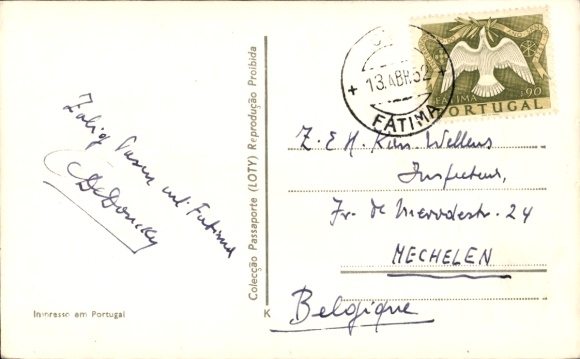 Zalig Pasen uit Fatima
C DeDoncker
Impresso em Portugal
Colecção Passaporte (LOTY) Reprodução Proibida
K
13.ABR.52
FÁTIMA
FATIMA
$90
PORTUGAL
Z.E.H. Kan. Wellens
Inspecteur,
Fr. de Merodestr. 24
MECHELEN
Belgique